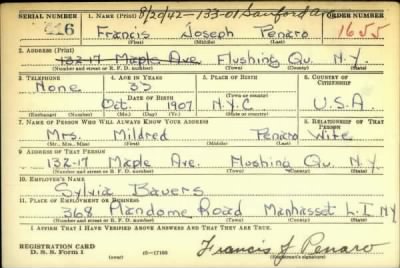 SERIAL NUMBER 1. NAME (Print) 8/20/42-133-01 Sanford Ave ORDER NUMBER
416 Francis Joseph Penaro 1655
(First) (Middle) (Last)
2. ADDRESS (Print)
132-17 Maple Ave Flushing Qu. N.Y.
(Number and street or R. F. D. number) (Town) (County) (State)
3. TELEPHONE 4. AGE IN YEARS 5. PLACE OF BIRTH 6. COUNTRY OF CITIZENSHIP
None 33
DATE OF BIRTH (Town or county)
Oct. 1 1907 N.Y.C. U.S.A.
(Exchange) (Number) (Mo.) (Day) (Yr.) (State or country)
7. NAME OF PERSON WHO WILL ALWAYS KNOW YOUR ADDRESS 8. RELATIONSHIP OF THAT PERSON
Mrs. Mildred Penaro Wife
(Mr., Mrs., Miss) (First) (Middle) (Last)
9. ADDRESS OF THAT PERSON
132-17 Maple Ave. Flushing Qu. N.Y.
(Number and street or R. F. D. number) (Town) (County) (State)
10. EMPLOYER'S NAME
Sylvia Bauers
11. PLACE OF EMPLOYMENT OR BUSINESS
368 Plandome Road Manhasset L.I NY
(Number and street or R. F. D. number) (Town) (County) (State)
I AFFIRM THAT I HAVE VERIFIED ABOVE ANSWERS AND THAT THEY ARE TRUE.
REGISTRATION CARD
D. S. S. FORM 1 16-17105 Francis J Penaro
(over) (Registrant's signature)